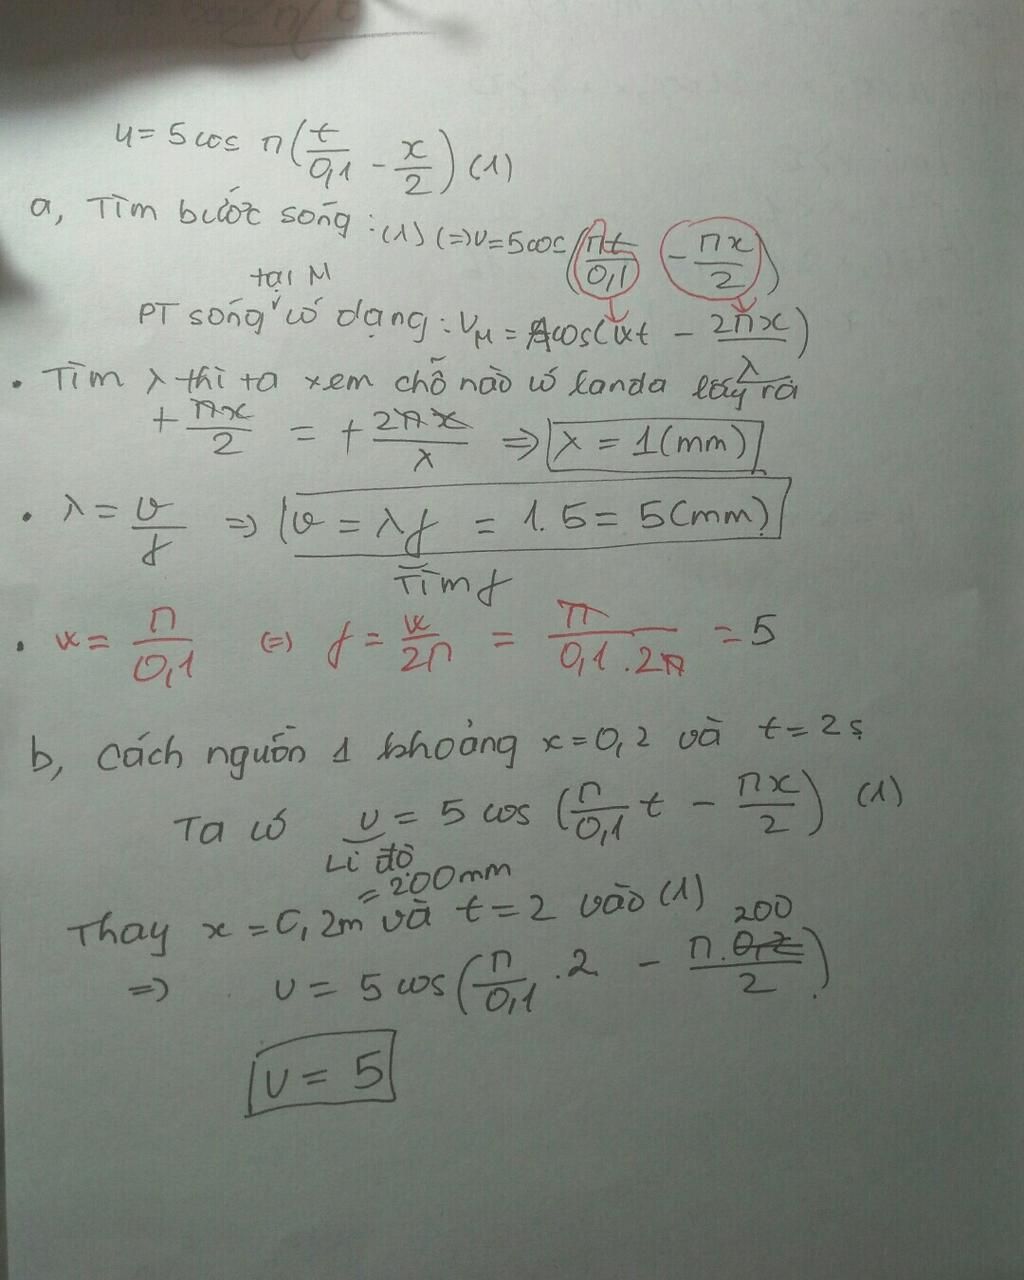 u = 5 cos π(t/0,1 - x/2) (1)
a, Tìm bước sóng : (1) (=) u = 5 cos(πt/0,1 - πx/2)
tại M
PT sóng có dạng : u_M = A cos(ωt - 2πx/λ)
• Tìm λ thì ta xem chỗ nào có landa lấy ra
+ πx/2 = + 2πx/λ => λ = 1 (mm)
• λ = v/f => v = λf = 1. 5 = 5 (mm)
Tìm f
• ω = π/0,1 (=) f = ω/2π = π/0,1 . 2π = 5
b, Cách nguồn 1 khoảng x = 0,2 và t = 2s
Ta có u = 5 cos (π/0,1 t - πx/2) (1)
Li độ
= 200 mm
Thay x = 0,2m và t = 2 vào (1)
200
=> u = 5 cos (π/0,1 . 2 - π. 0,2/2)
u = 5